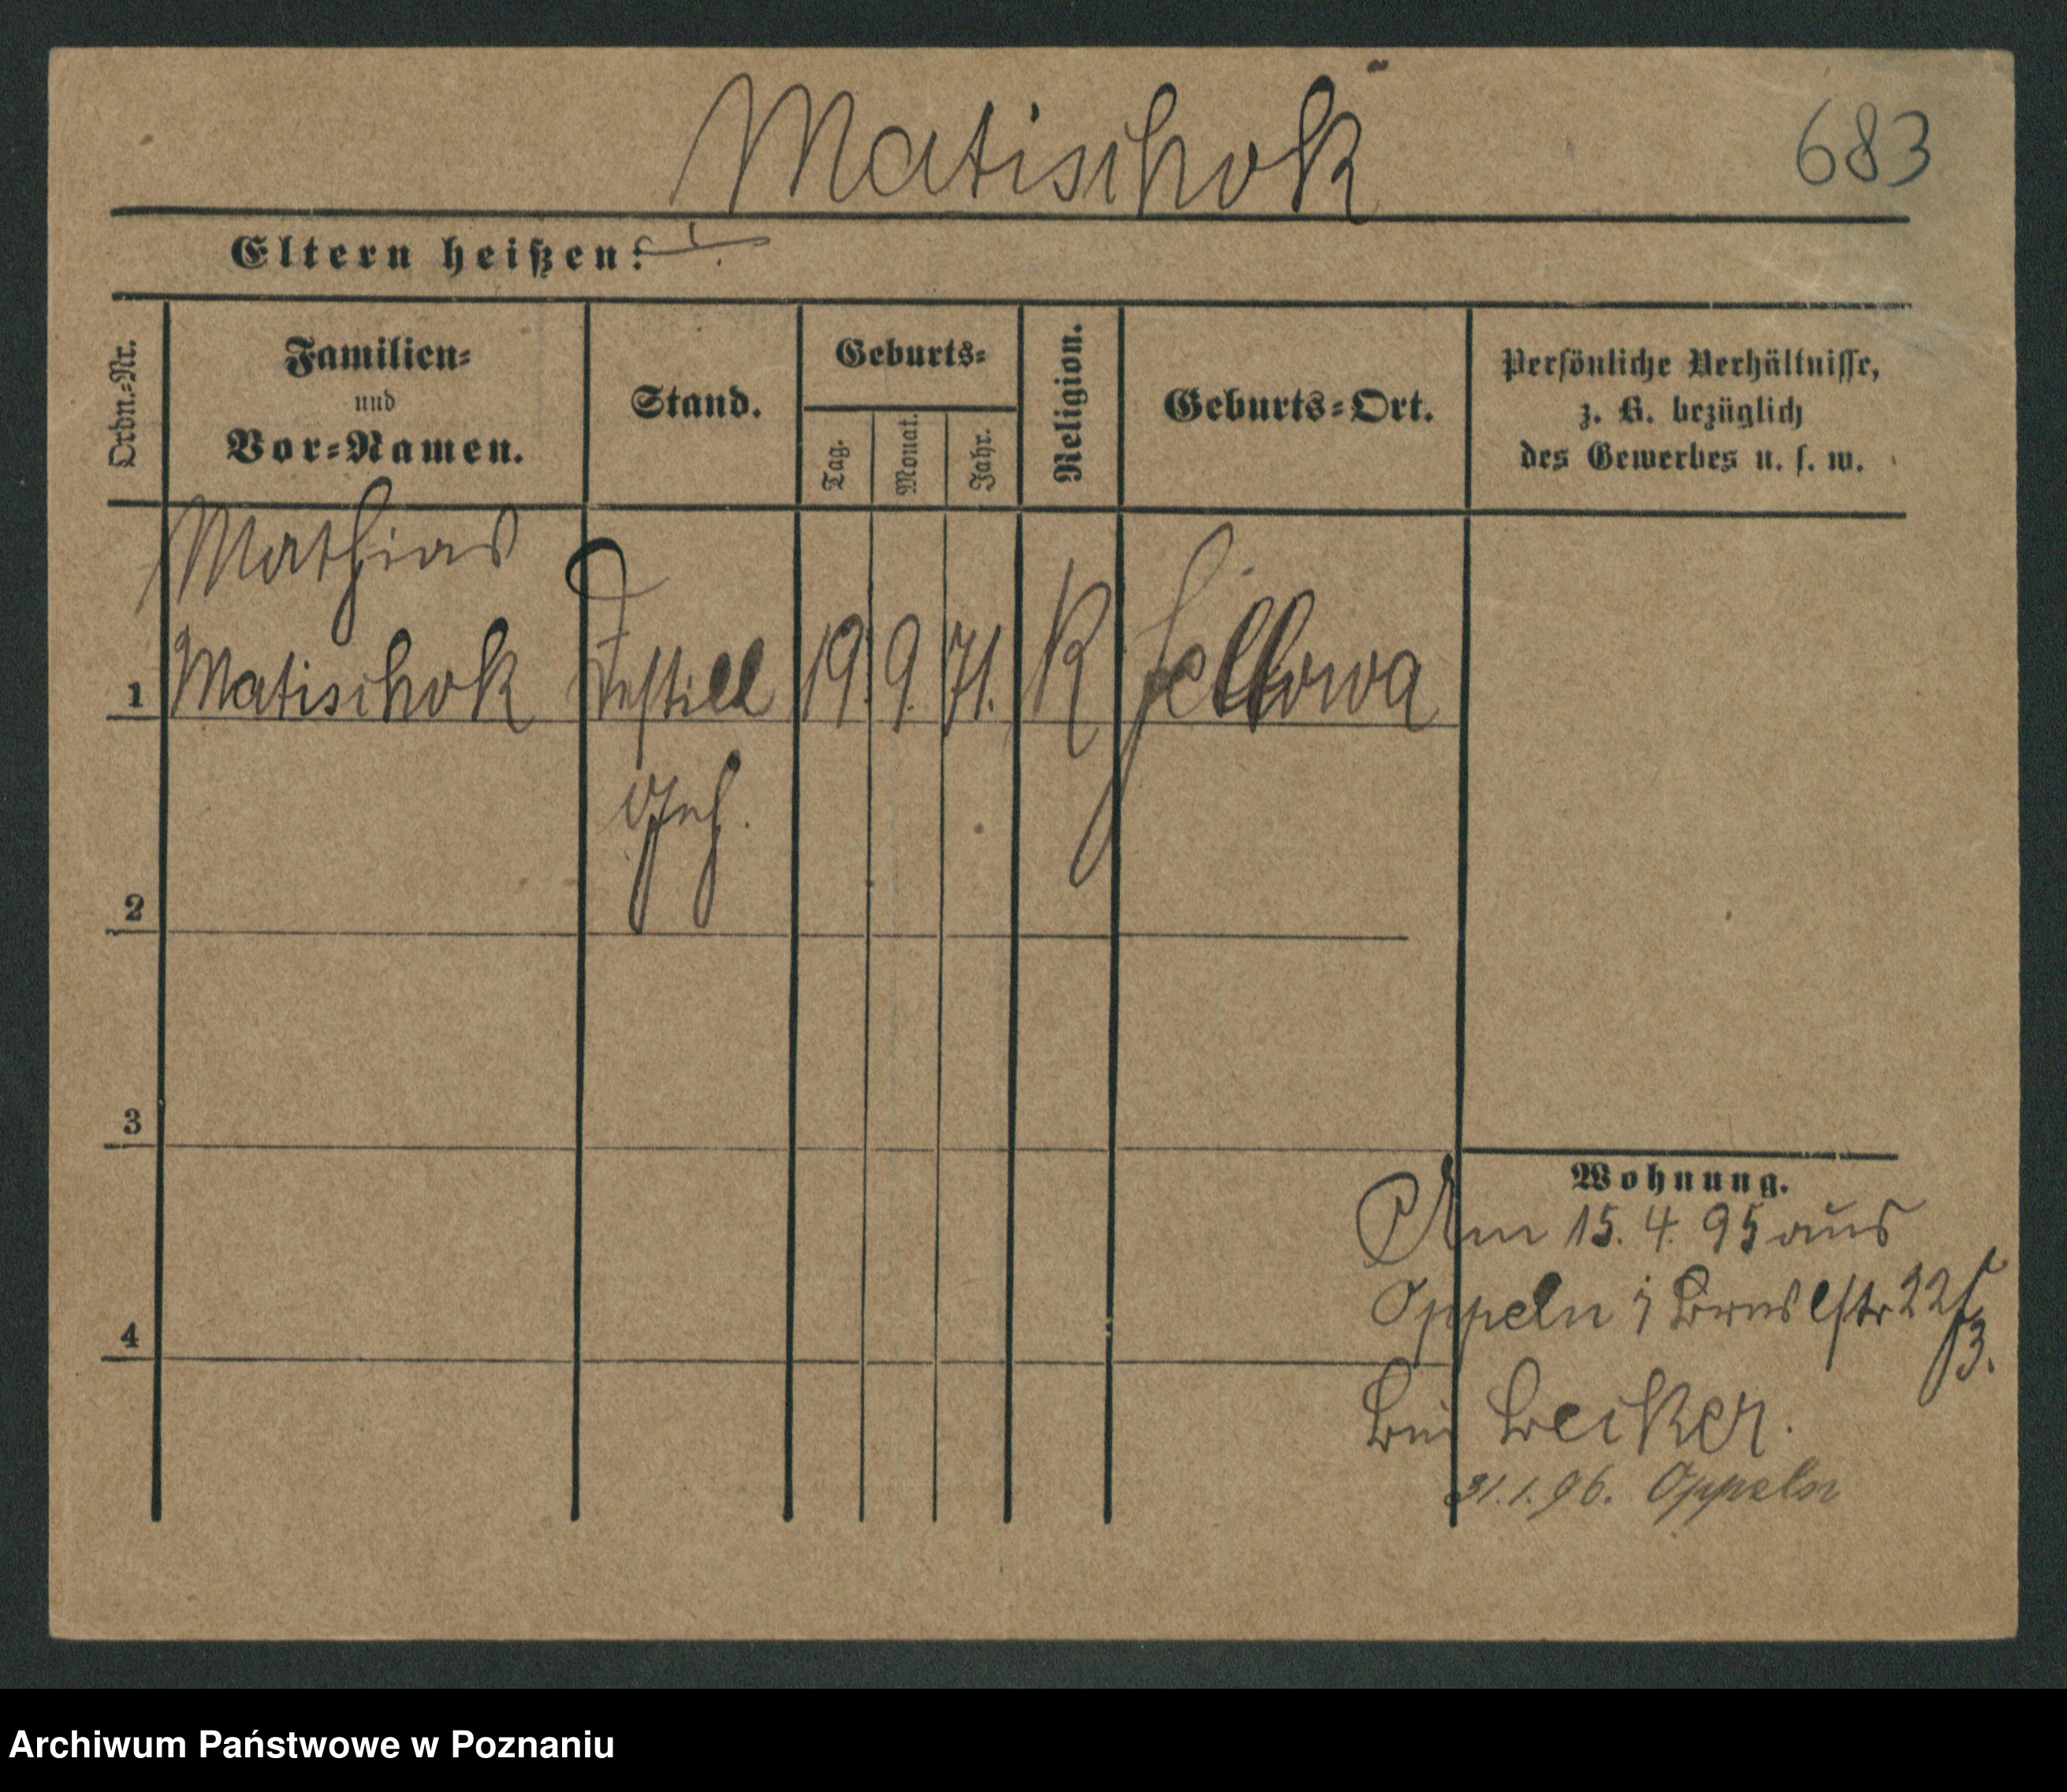 Matischok
683
Eltern heißen:
Ordn.=Nr.
Familien=
und
Vor=Namen.
Stand.
Geburts=
Tag.
Monat.
Jahr.
Religion.
Geburts=Ort.
Persönliche Verhältnisse,
z. B. bezüglich
des Gewerbes u. s. w.
Mathias
1 Matischok Destill 19. 9. 71. K
Geh.
2
3
4
Wohnung.
Am 15. 4. 95 aus
Oppeln 22
3.
bei Becker.
31. 1. 96. Oppeln
Archiwum Państwowe w Poznaniu